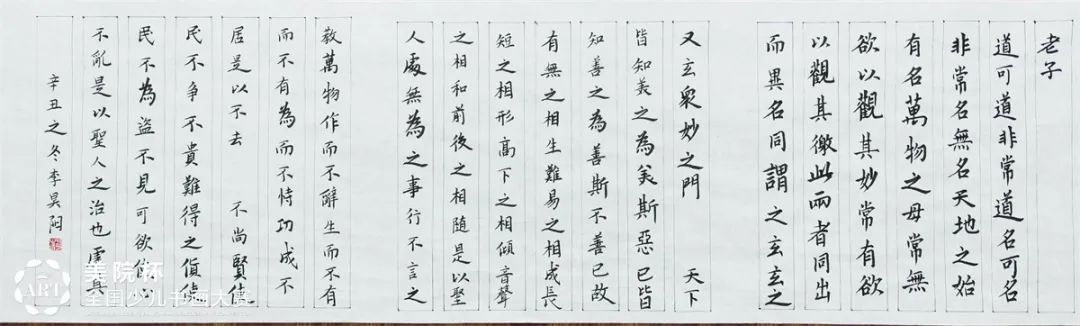 老子
道可道非常道名可名
非常名無名天地之始
有名萬物之母常無
欲以觀其妙常有欲
以觀其徼此兩者同出
而異名同謂之玄玄之
又玄衆妙之門 天下
皆知美之為美斯惡已皆
知善之為善斯不善已故
有無之相生難易之相成長
短之相形高下之相傾音聲
之相和前後之相隨是以聖
人處無為之事行不言之
教萬物作而不辭生而不有
而不有為而不恃功成不
居是以不去 不尚賢使
民不争不貴難得之貨使
民不為盜不見可欲使心
不亂是以聖人之治也虛其
辛丑之冬李昊阳
ART
美院杯
全国少儿书画大赛